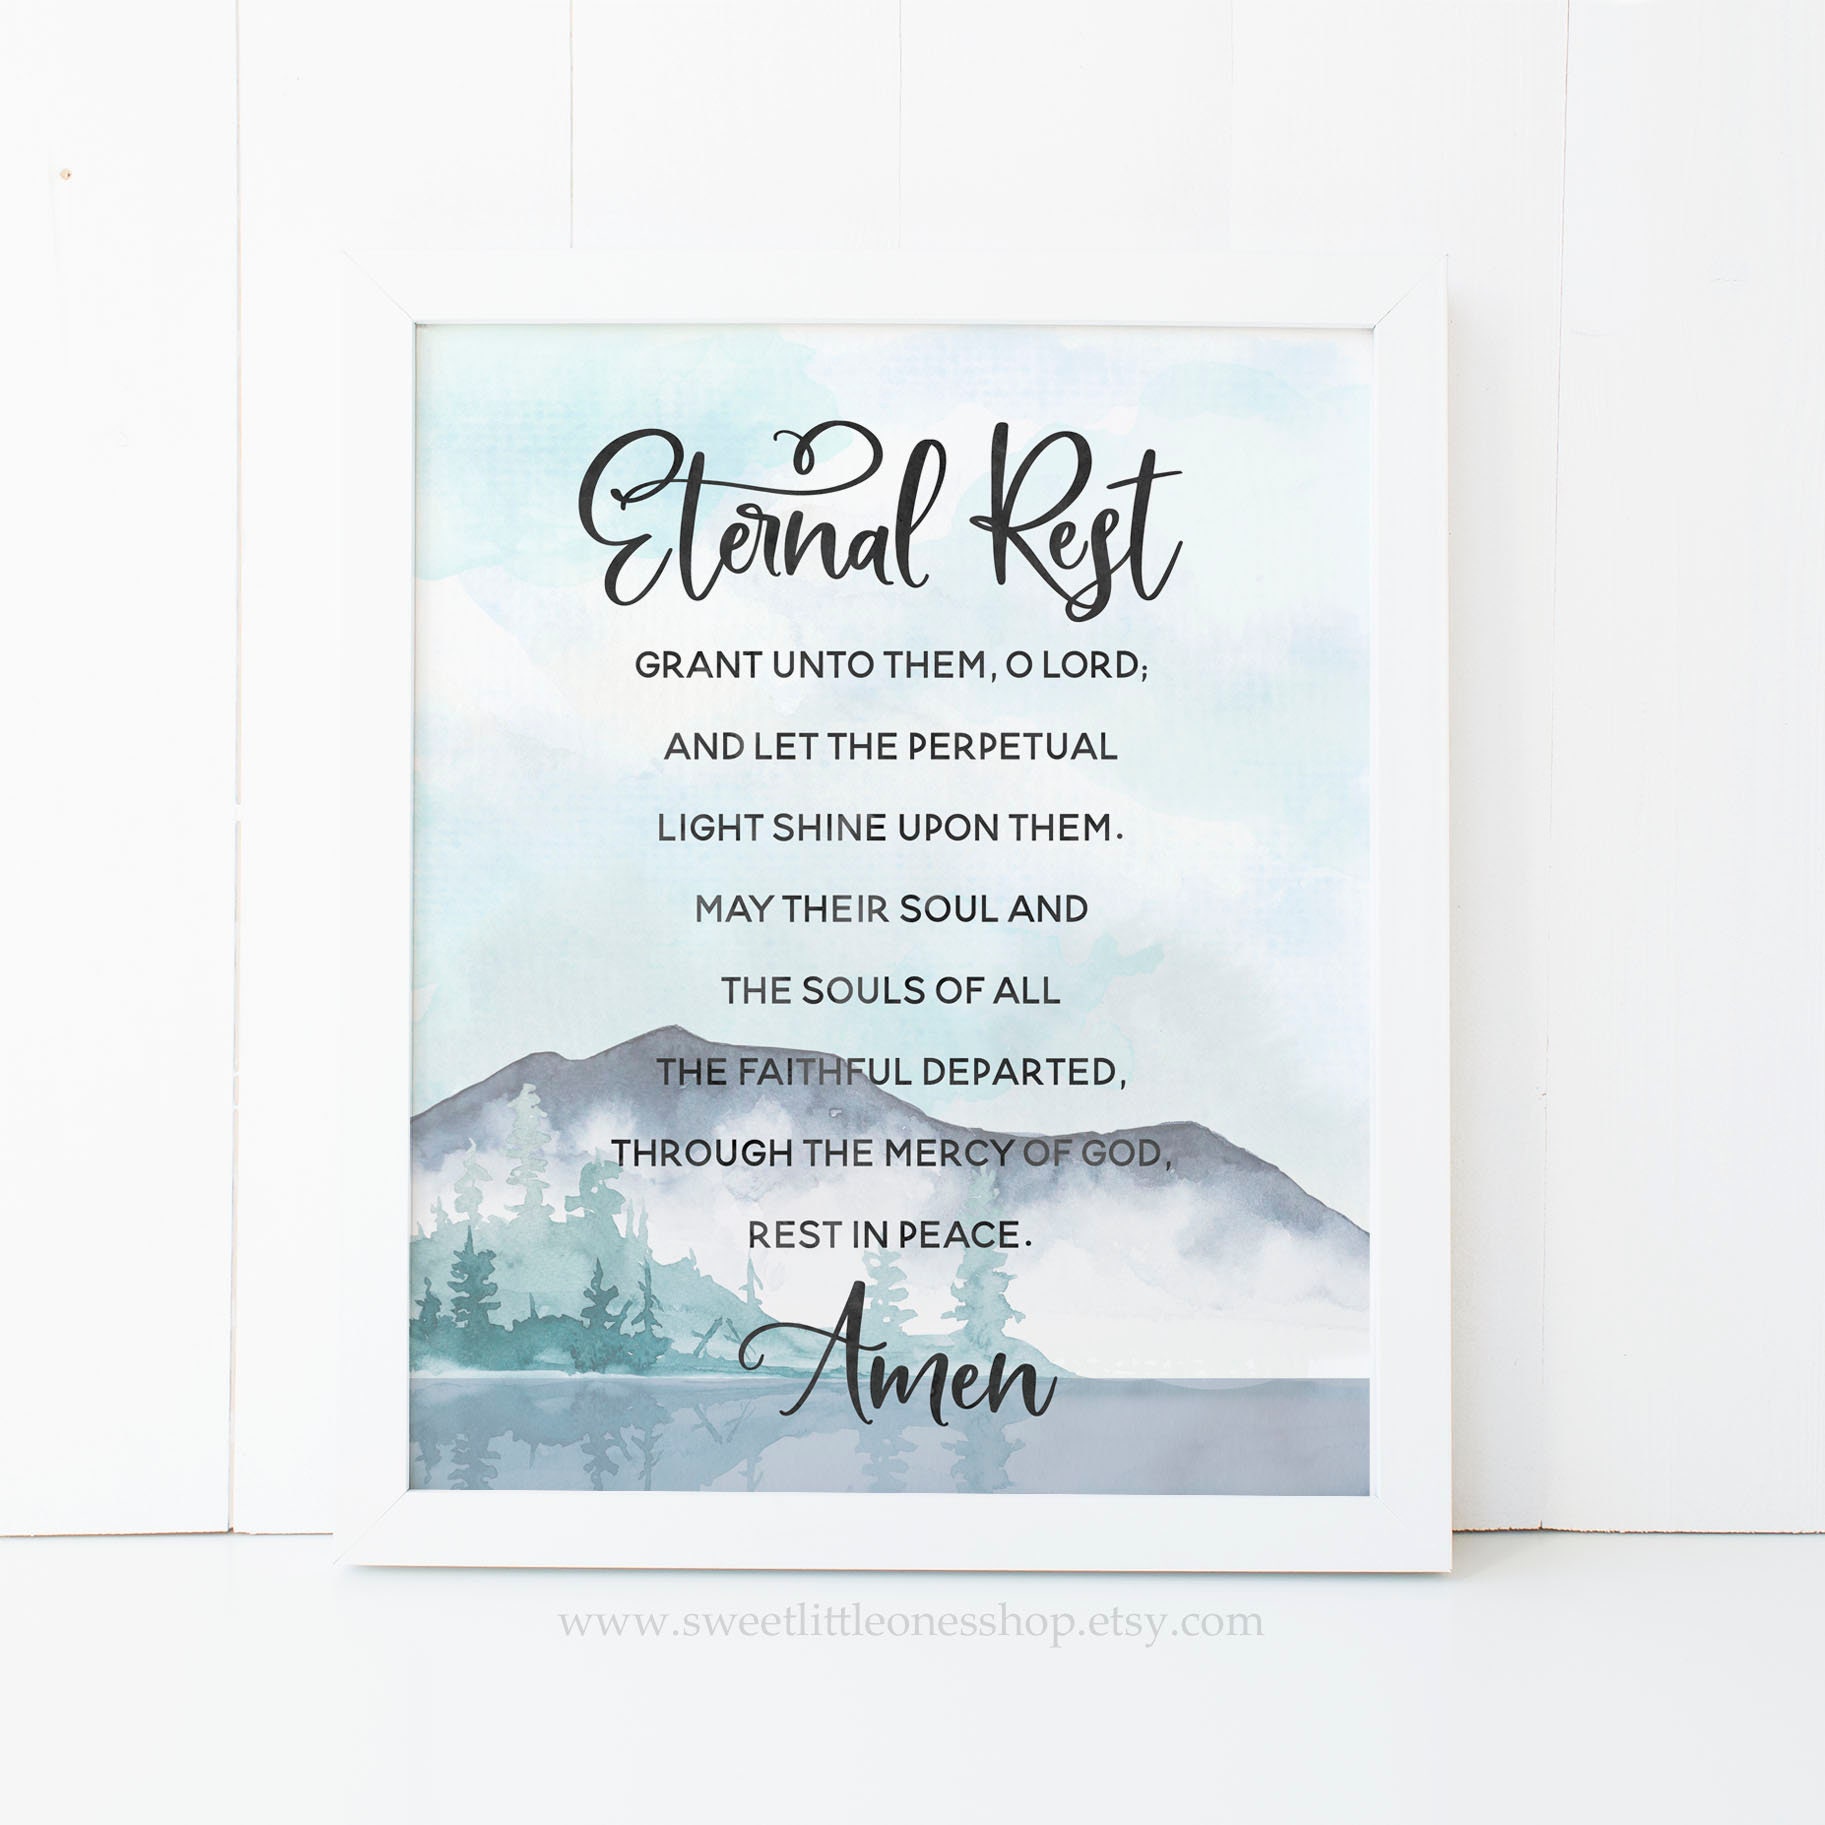 Eternal Rest
GRANT UNTO THEM, O LORD;
AND LET THE PERPETUAL
LIGHT SHINE UPON THEM.
MAY THEIR SOUL AND
THE SOULS OF ALL
THE FAITHFUL DEPARTED,
THROUGH THE MERCY OF GOD,
REST IN PEACE.
Amen
www.sweetlittleonesshop.etsy.com